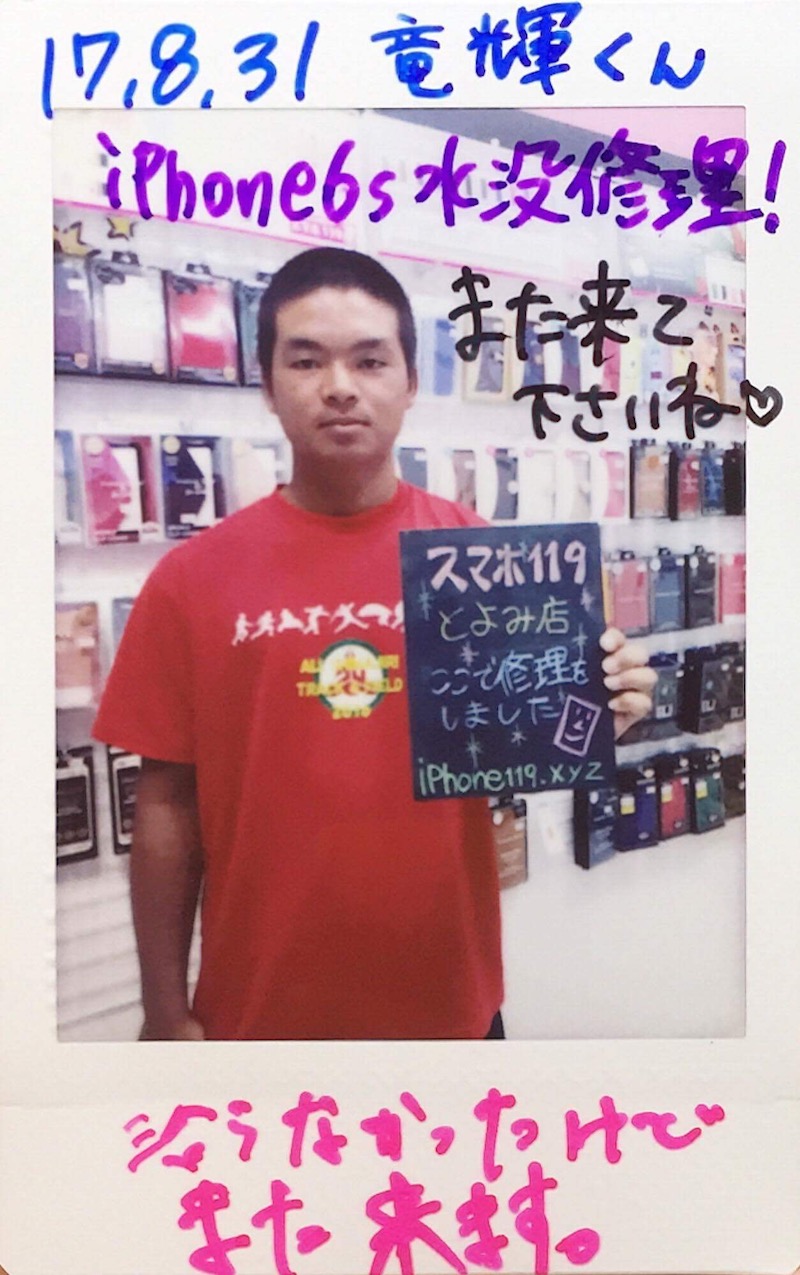 17.8.31 竜輝くん
iPhone6s 水没修理!
また来て
下さいね♡
スマホ119
とよみ店
ここで修理を
しました
iPhone119.xyz
24
2016
治らなかったけど
また来ます。